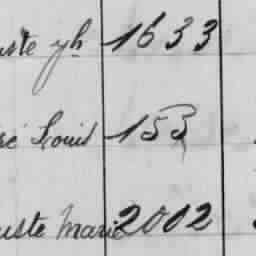 uste yh 1633
sé Louis 153
uste Marie 2002